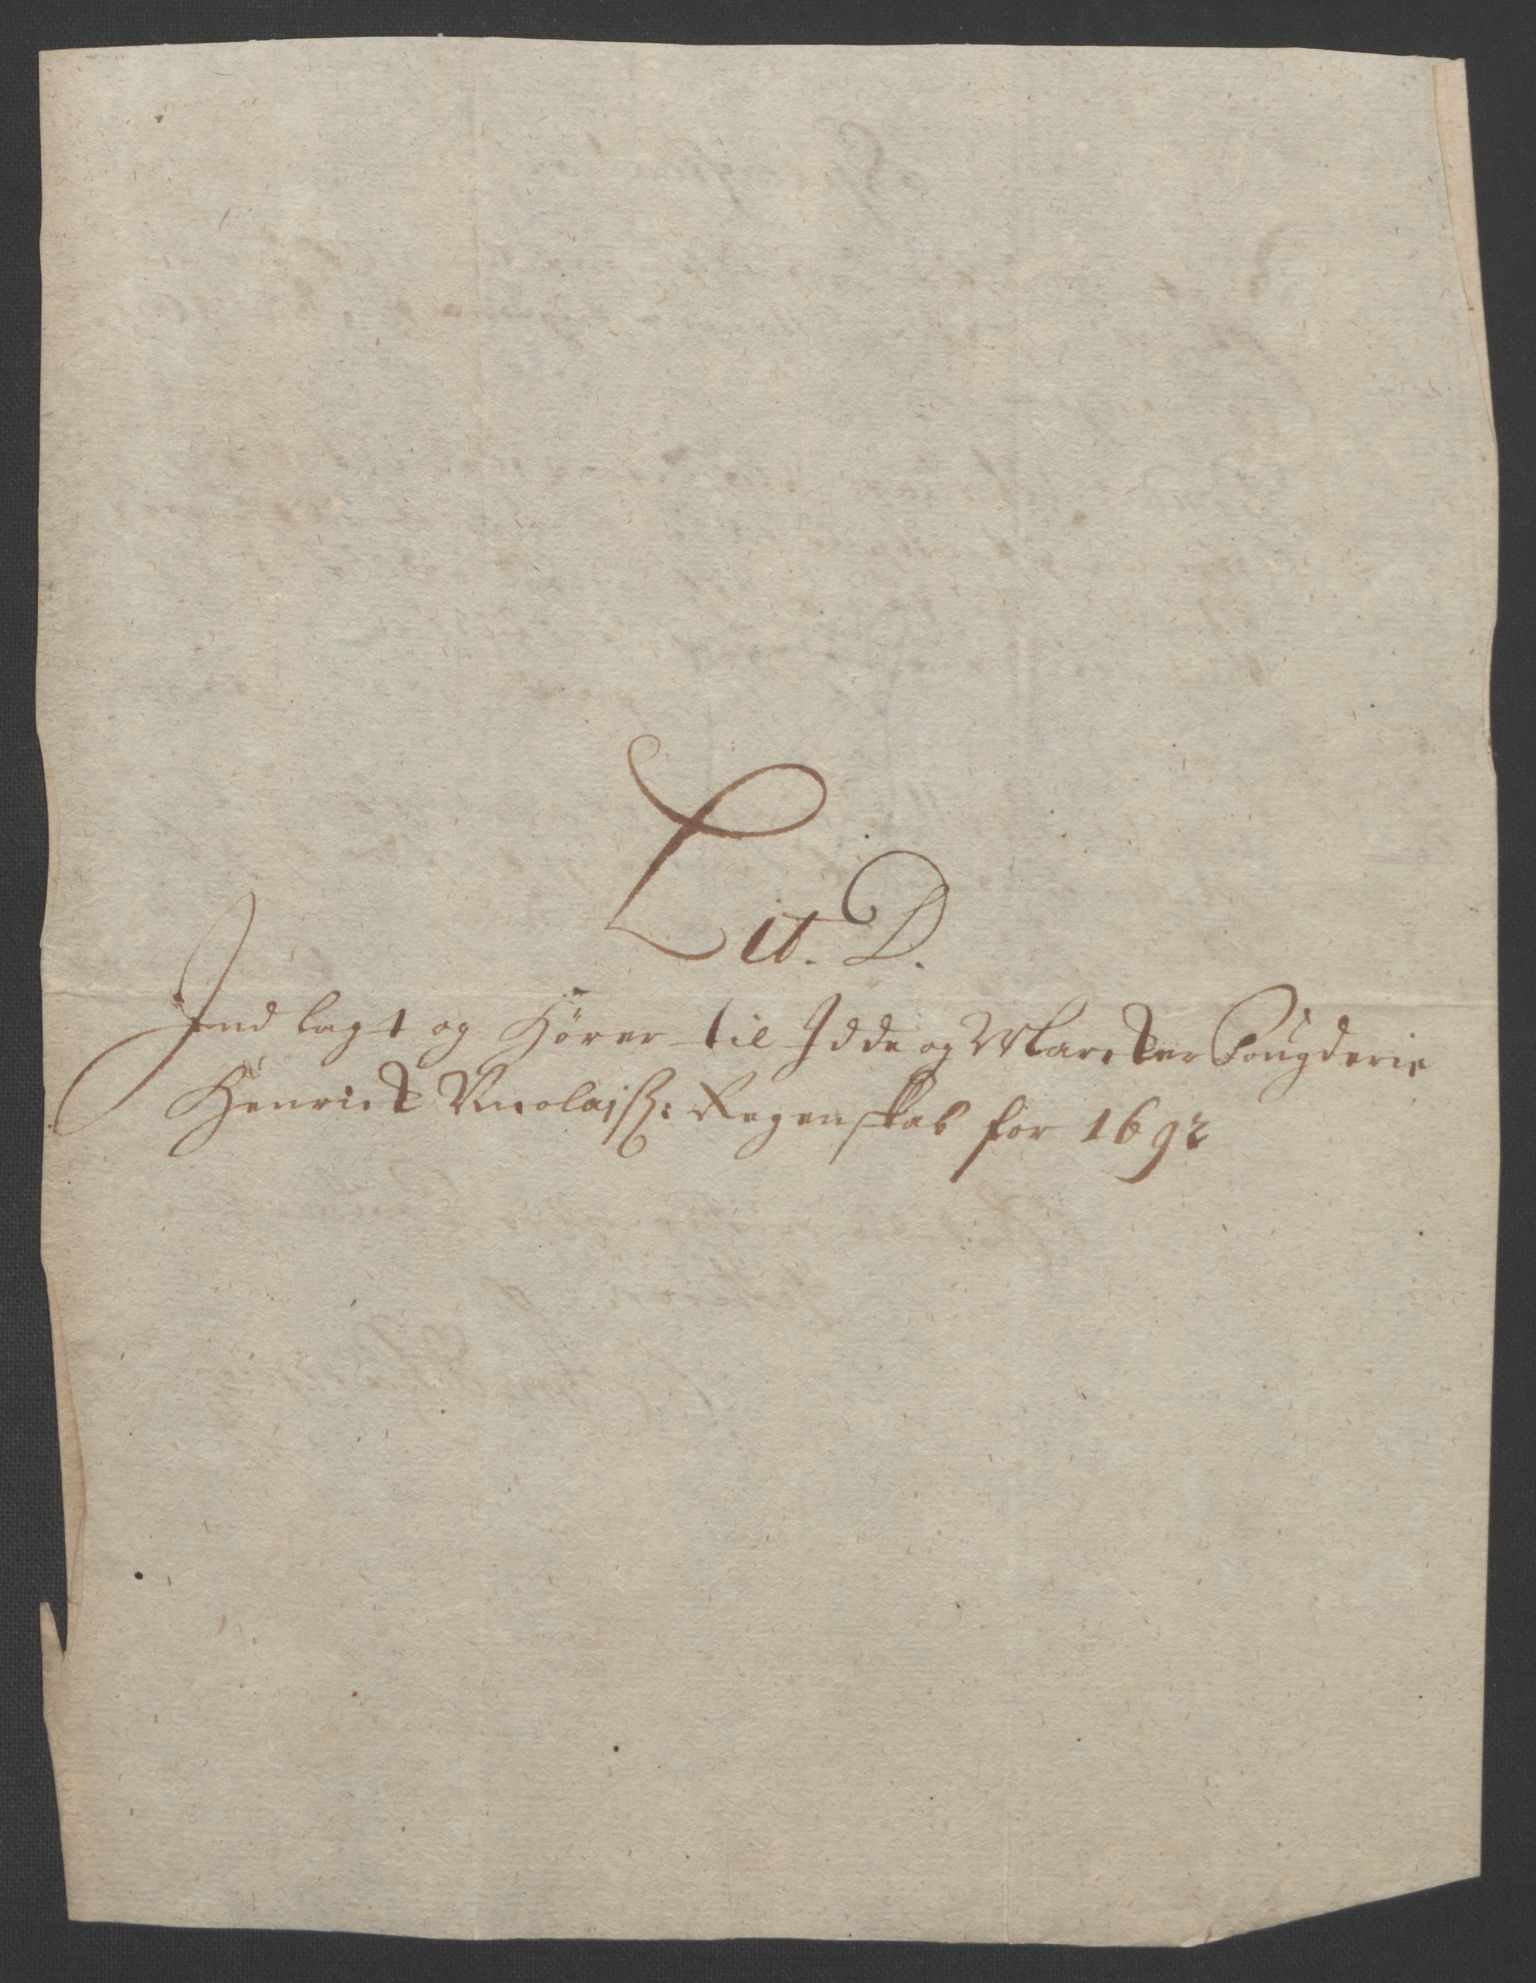 Lit. D.
Indlagt og Hører til Idde og Marcker Fougderie
Henrick Nicolaisß: Regenskab for 1692